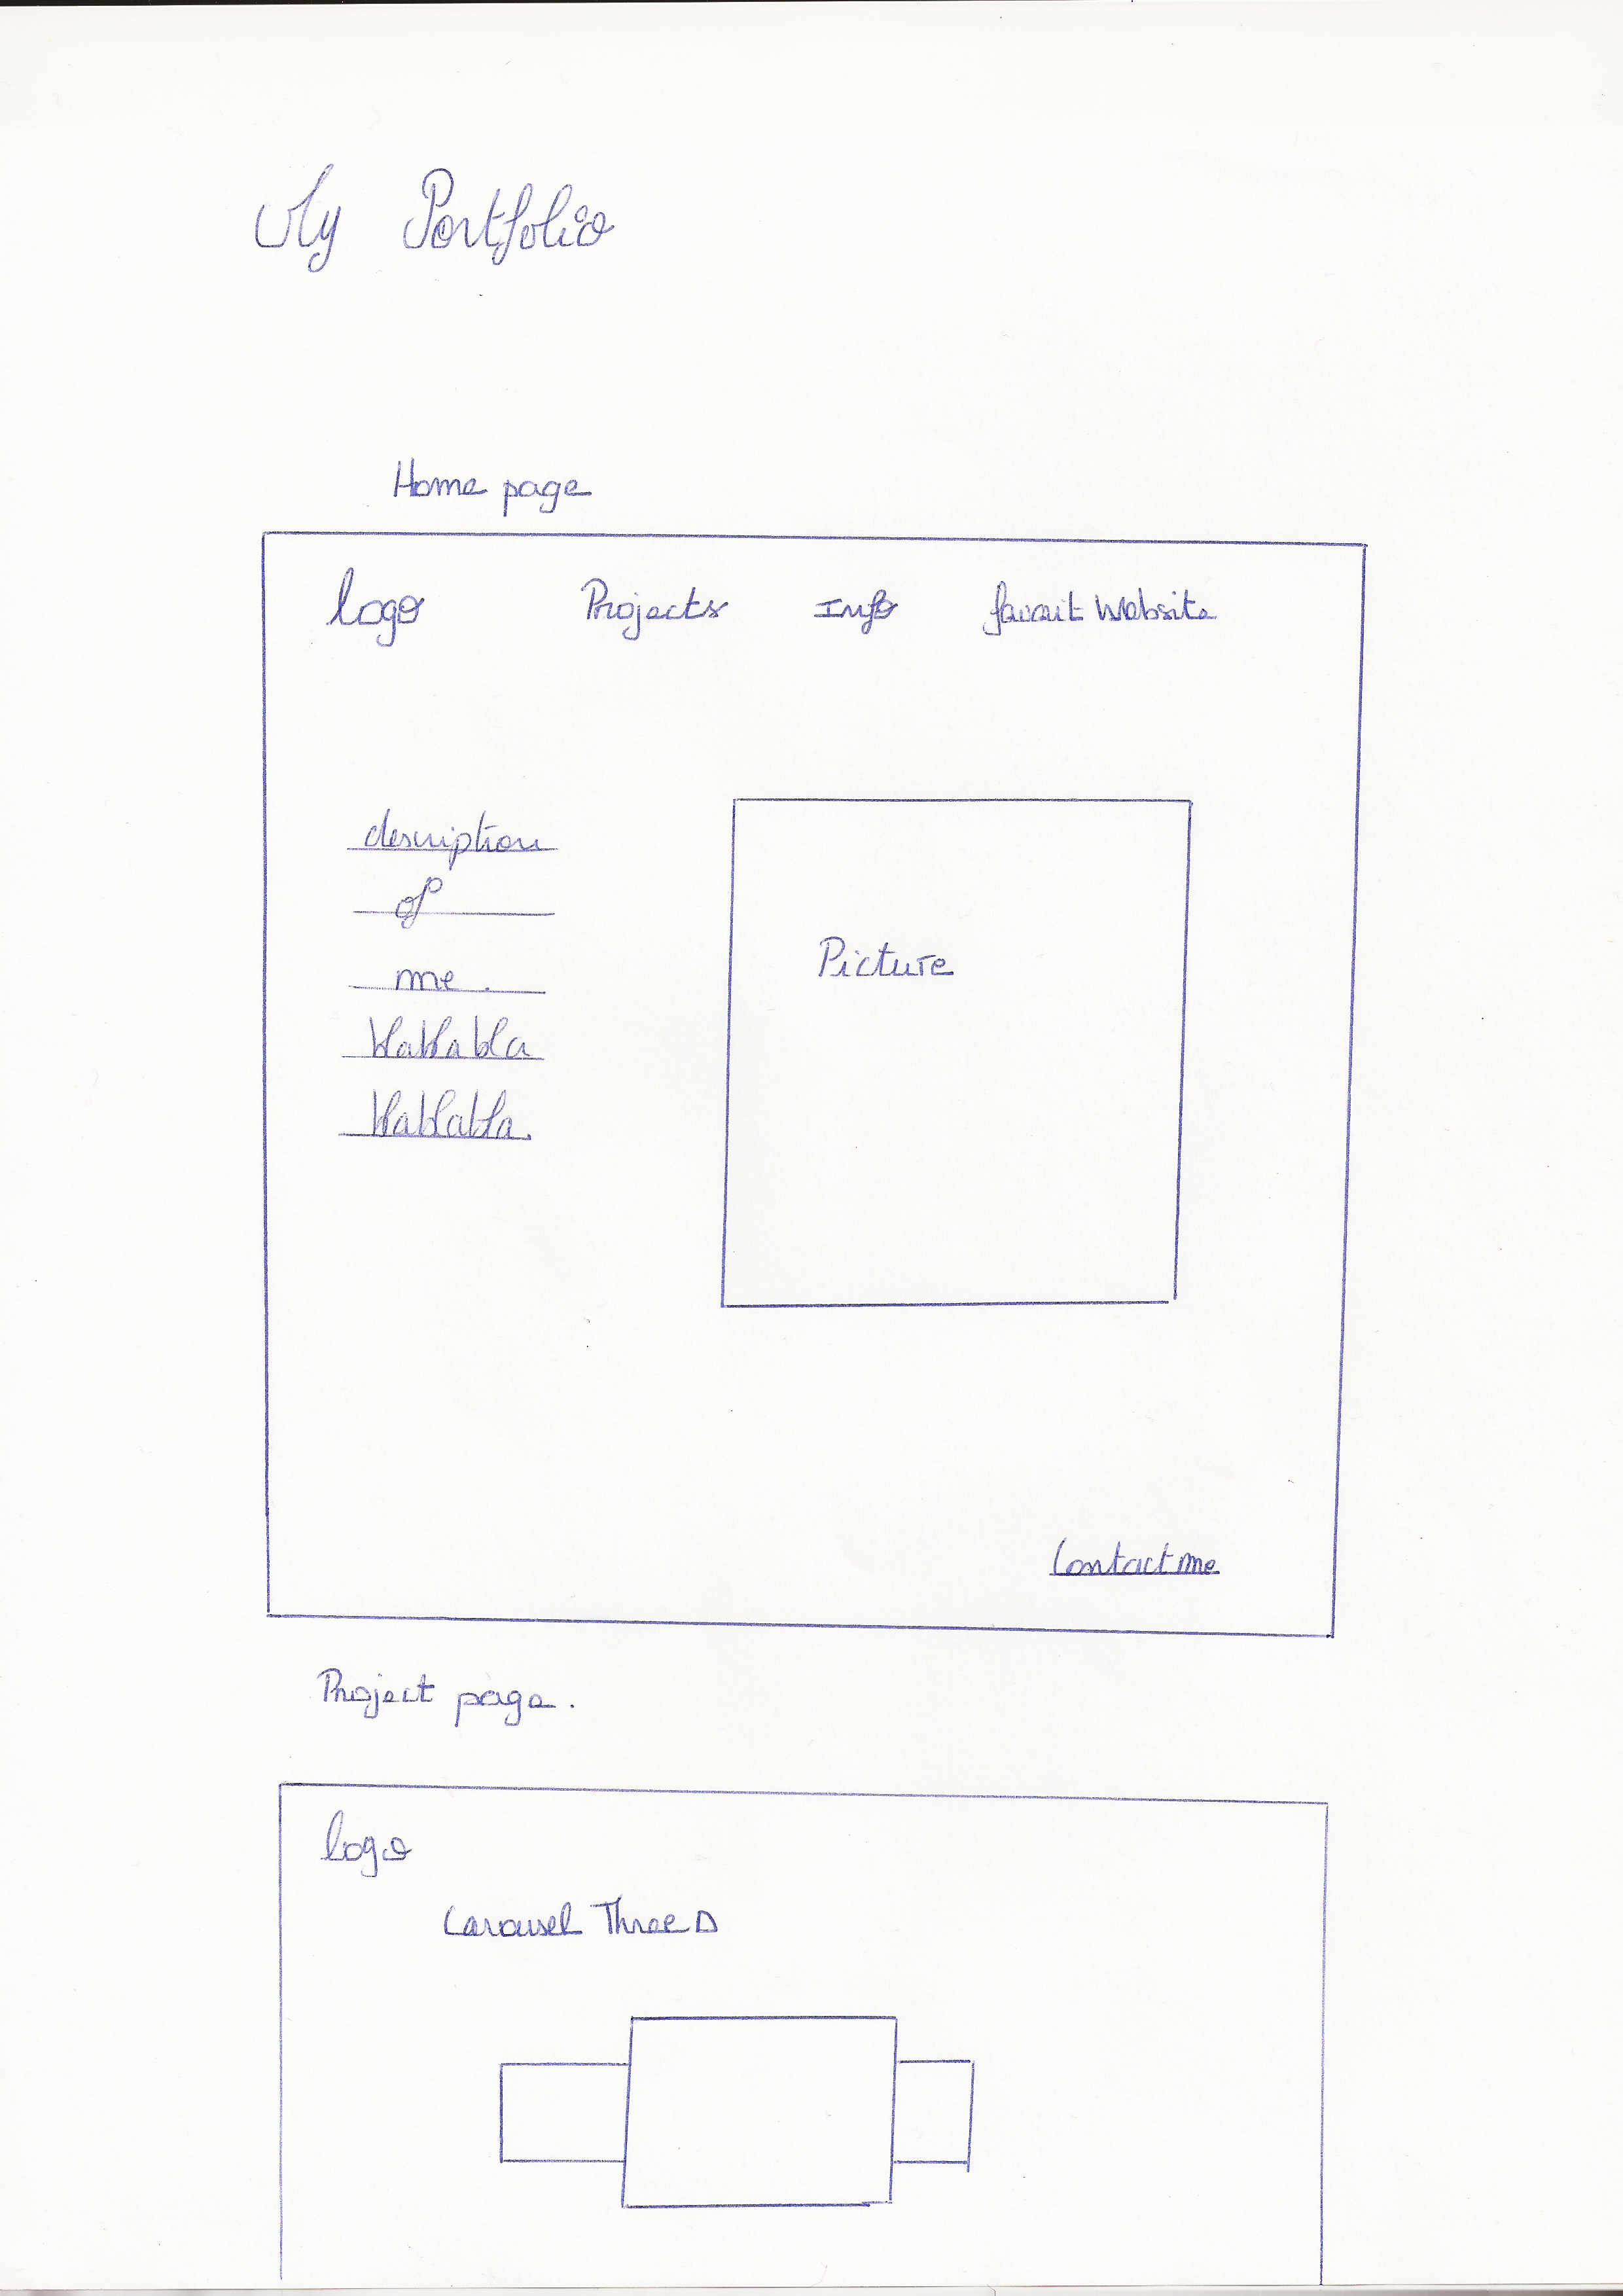 My Portfolio
Home page
logo Projects Info favorit Website
description
of
me.
blablabla
blablabla.
Picture
Contact me
Project page.
logo
Carousel Three D